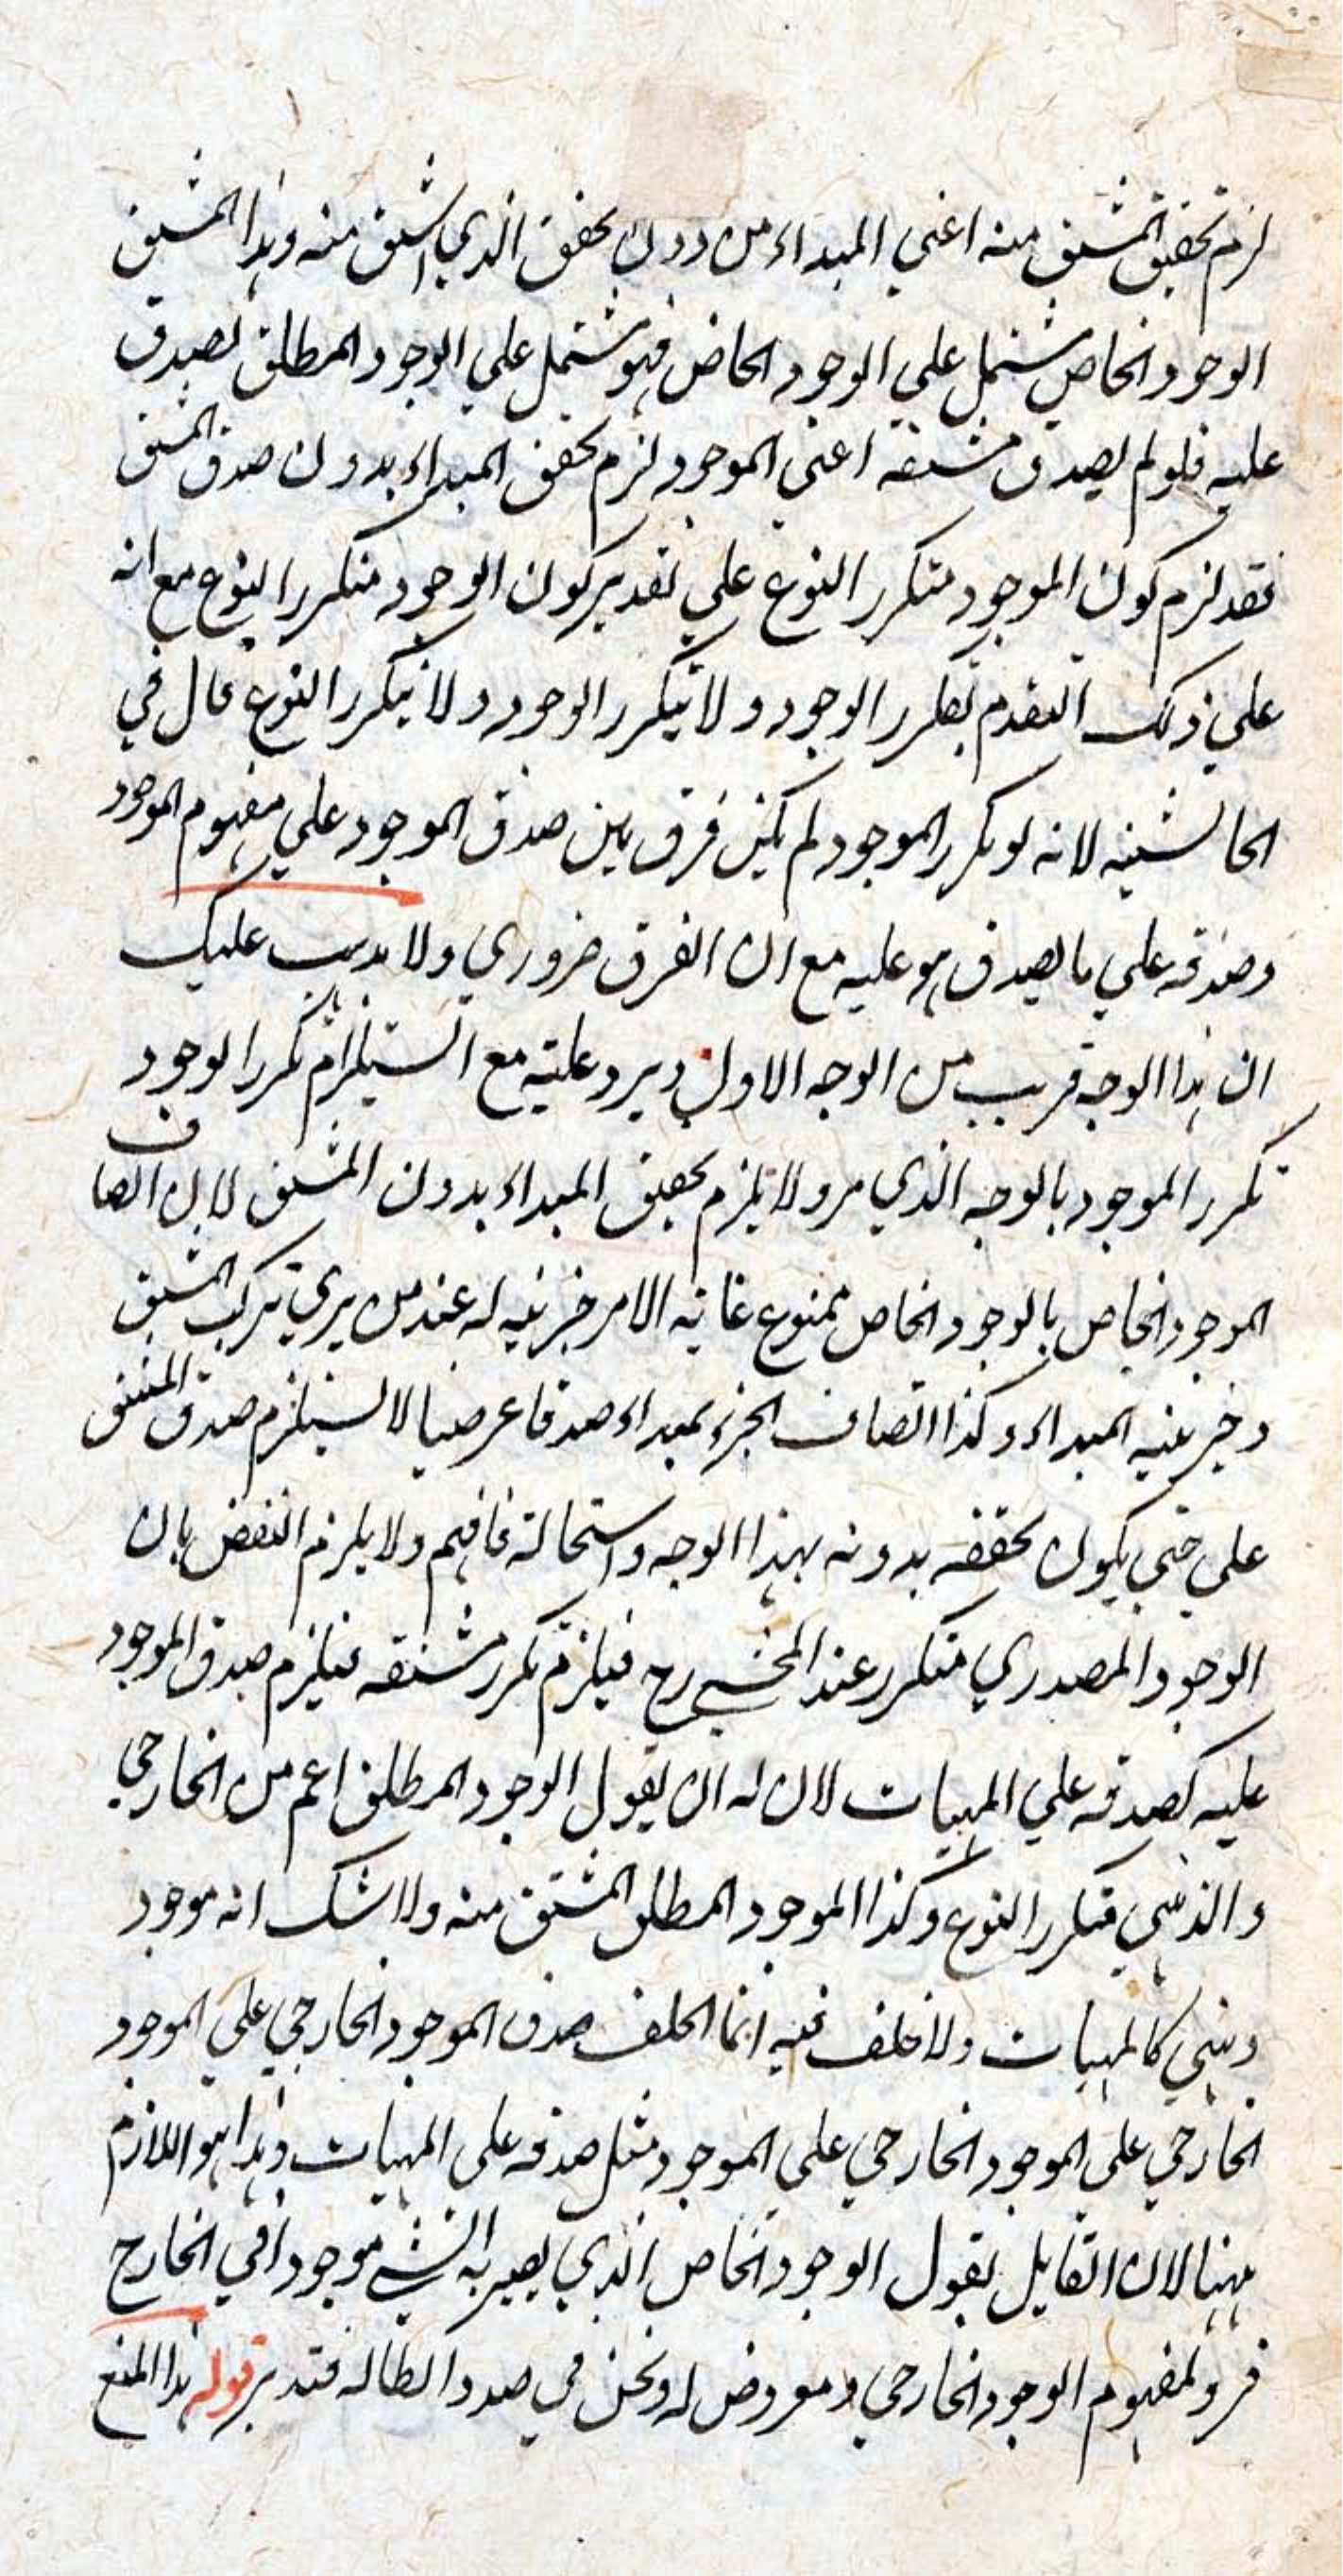 لزم تحقق المشتق منه اعني المبداء من دون تحقق الذي اشتق منه وهذا المشتق
الوجود الخاص مشتمل علي الوجود الخاص فهو مشتمل علي الوجود المطلق لصدق
عليه فلو لم يصدق مشتقه اعني الموجود لزم تحقق المبداء بدون صدق المشتق
فقد لزم كون الموجود متكرر النوع علي تقدير كون الوجود متكرر النوع مع انه
علي ذلك التقدم تكرر الوجود ولا يتكرر الوجود ولا يتكرر النوع قال في
الحاشية لانه لو تكرر الموجود لم يكن فرق بين صدق الموجود علي مفهوم الموجود
وصدقه علي ما يصدق هو عليه مع ان الفرق ضروري ولا يذهب عليك
ان هذا الوجه قريب من الوجه الاول ويرد عليه مع استلزام تكرر الوجود
تكرر الموجود بالوجه الذي مر ولا يلزم تحقق المبداء بدون المشتق لان اتصاف
الموجود الخاص بالوجود الخاص ممنوع غاية الامر جزئيه له عند من يري تركب المشتق
وجزئية المبداء وكذا اتصاف الجزء بمبداء صدقا عرضيا لا يستلزم صدق المشتق
علي حتي يكون تحققه بدونه بهذا الوجه واستحالة فافهم ولا يلزم النقض بان
الوجود المصدري متكرر عند المحشي رح فيلزم تكرر مشتقه فيلزم صدق الموجود
عليه كصدقه علي المهيات لان له ان يقول الوجود المطلق اعم من الخارجي
والذهني متكرر النوع وكذا الموجود المطلق المشتق منه ولا شك انه موجود
ذهني كالمهيات ولا خلف فيه انما الخلف صدق الموجود الخارجي علي الموجود
الخارجي علي الموجود الخارجي علي الموجود مثل صدقه علي المهيات وهذا هو اللازم
ههنا لان القايل يقول الوجود الخاص الذي يصير به الشي موجودا في الخارج
فرد لمفهوم الوجود الخارجي ومعروض له ونحن في صدد ابطاله فتدبر قوله هذا المنع